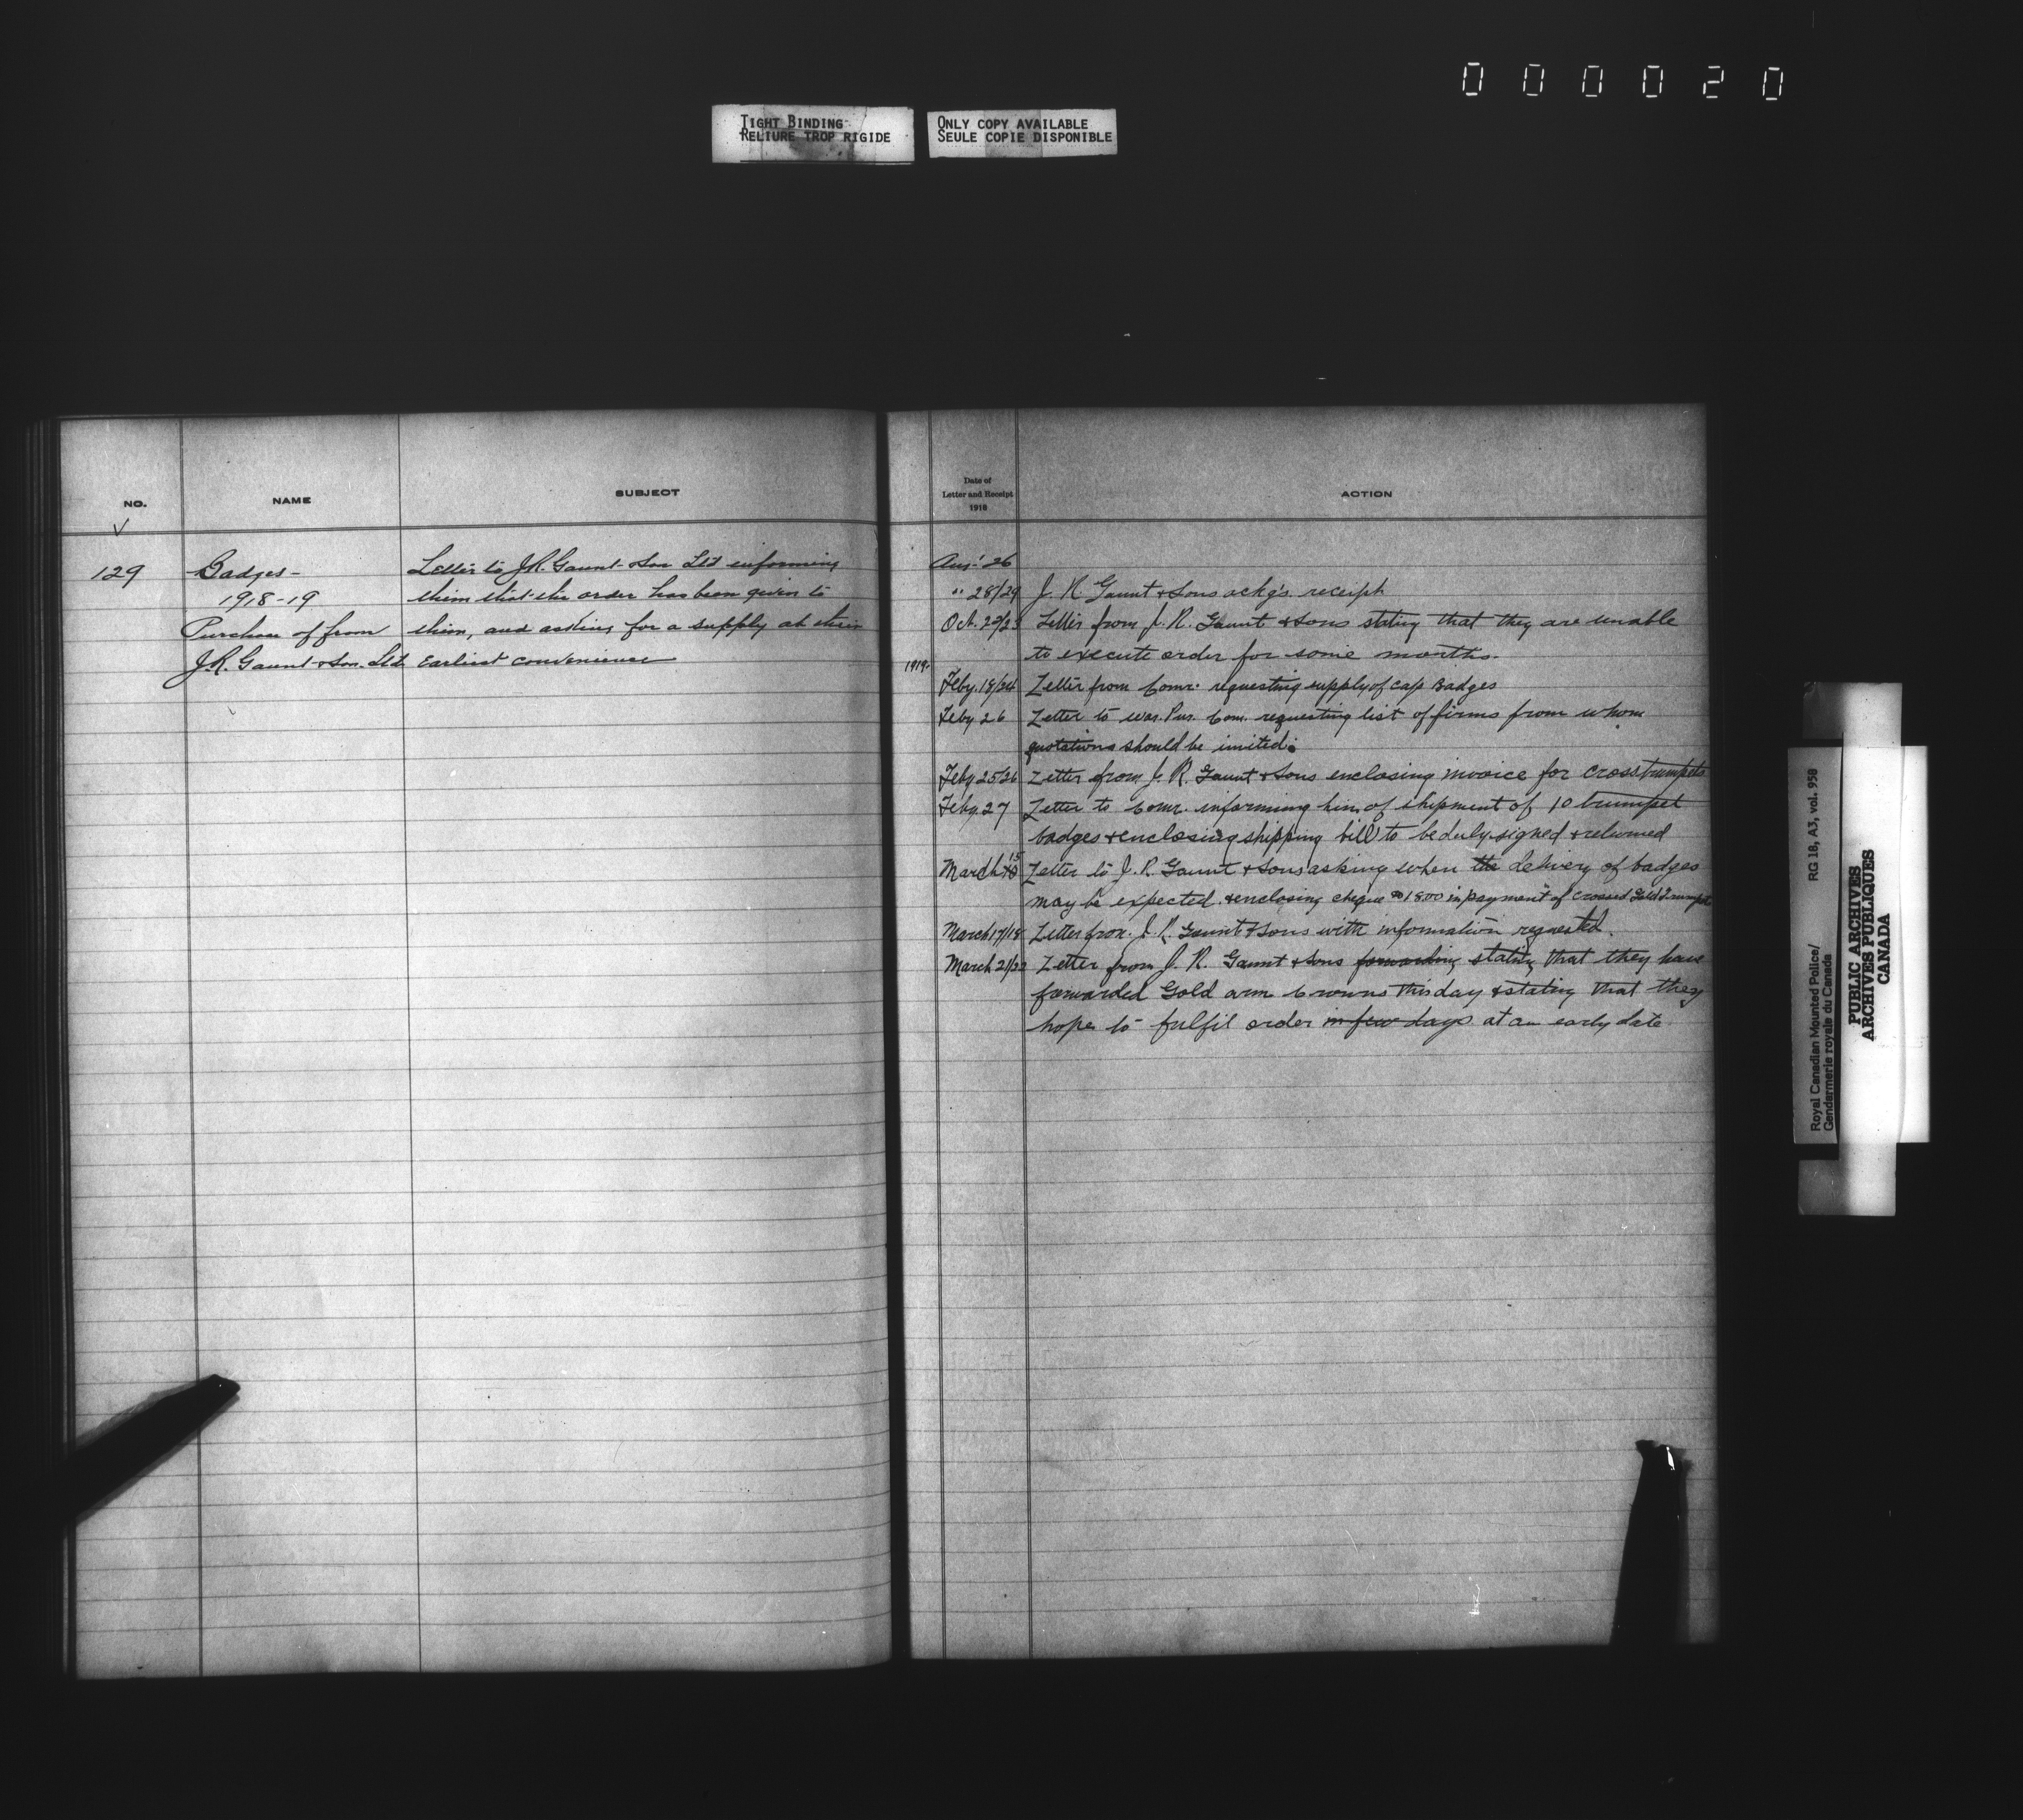 000020
TIGHT BINDING
RELIURE TROP RIGIDE
ONLY COPY AVAILABLE
SEULE COPIE DISPONIBLE
NO.
NAME
SUBJECT
129
Badges-
1918-19
Purchase of from
J.R. Gaunt & Son. Ltd
Letter to J.R. Gaunt & Son Ltd informing
them that the order has been given to
them, and asking for a supply at their
earliest convenience
Date of
Letter and Receipt
1918
ACTION
Aug. 26
" 28/29 J. R Gaunt & Sons ackg's receipt
Oct. Letter from J. R. Gaunt & Sons stating that they are unable
to execute order for some months.
1919.
Feby. 18/24 Letter from Comr. requesting supply of cap Badges
Feby 26 Letter to War. Pur. Com. requesting list of firms from whom
quotations should be invited.
Feby 25/26 Letter from J. R. Gaunt & Sons enclosing invoice for cross trumpets
Feby. 27 Letter to Comr. informing him of shipment of 10 trumpet
badges & enclosing shipping bill to be duly signed & returned
March 15 Letter to J. R. Gaunt & Sons asking when the delivery of badges
may be expected. & enclosing cheque 1800 in payment of crossed Gold Trumpets
March 17/18 Letter from J. R. Gaunt & Sons with information requested.
March 21/22 Letter from J. R. Gaunt & Sons forwarding stating that they have
forwarded Gold arm Crowns this day & stating that they
hope to fulfil order in few days at an early date
Royal Canadian Mounted Police/ RG 18, A3, vol. 958
Gendarmerie royale du Canada
PUBLIC ARCHIVES
ARCHIVES PUBLIQUES
CANADA